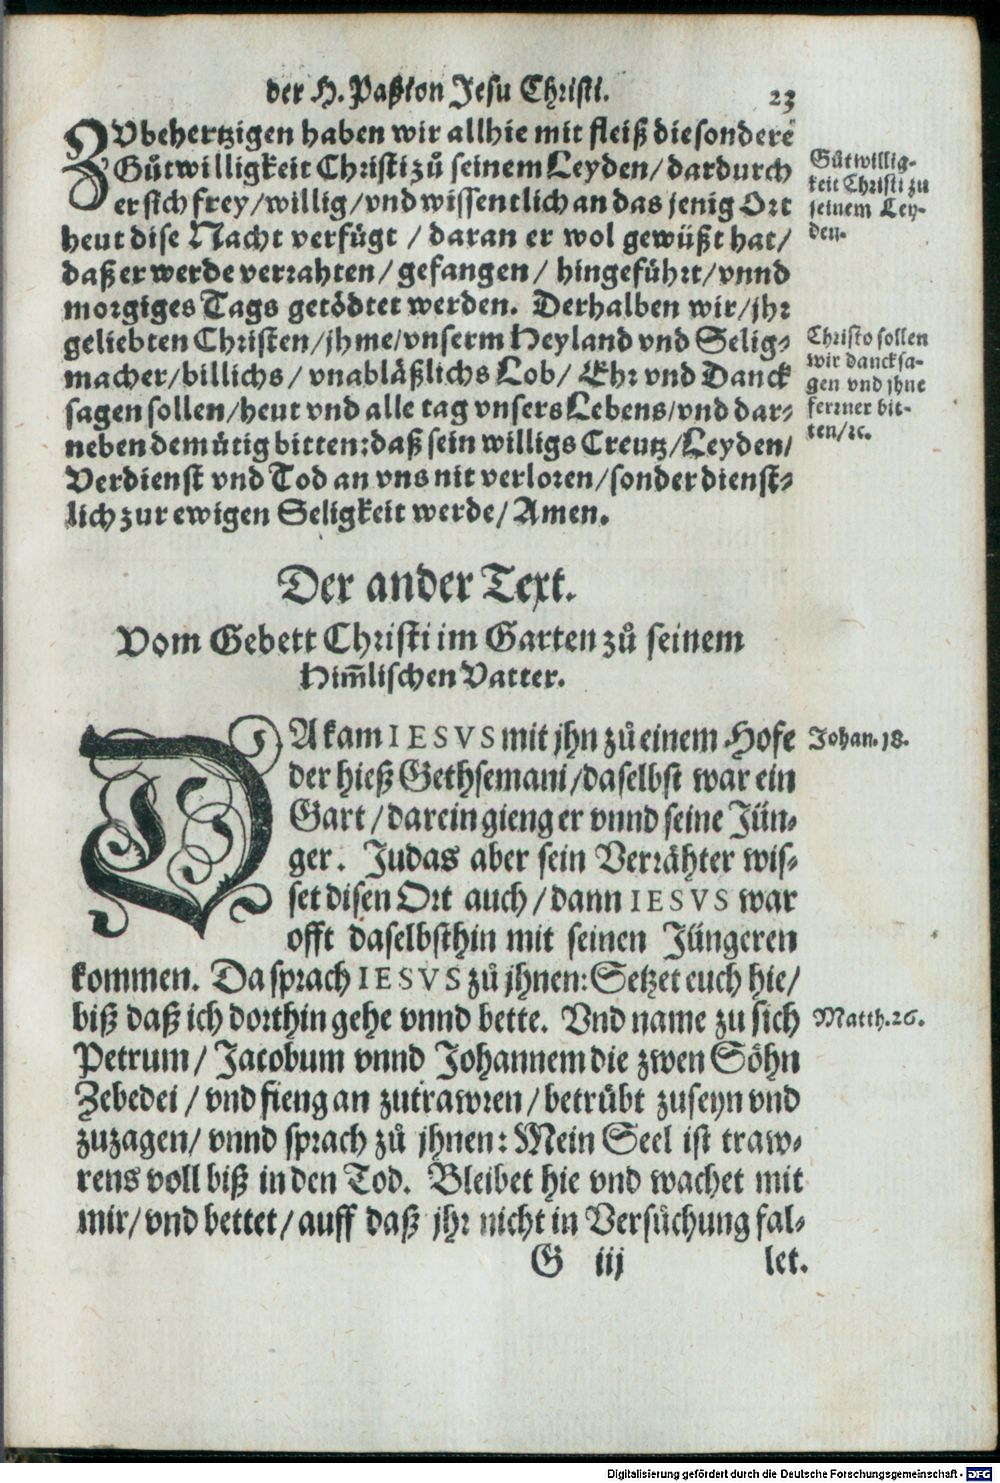 der H. Paßion Jesu Christi. 23
ZVbehertzigen haben wir allhie mit fleiß die sondere
Gůtwilligkeit Christi zů seinem Leyden/ dardurch
er sich frey/ willig/ vnd wissentlich an das jenig Ort
heut dise Nacht verfügt / daran er wol gewüßt hat/
daß er werde verrahten/ gefangen/ hingeführt/ vnnd
morgiges Tags getödtet werden. Derhalben wir/ jhr
geliebten Christen/ jhme/ vnserm Heyland vnd Selig-
macher/ billichs/ vnabläßlichs Lob/ Ehr vnd Danck
sagen sollen/ heut vnd alle tag vnsers Lebens/ vnd dar-
neben demütig bitten: daß sein willigs Creutz/ Leyden/
Verdienst vnd Tod an vns nit verloren/ sonder dienst-
lich zur ewigen Seligkeit werde/ Amen.
Gůtwillig-
keit Christi zu
seinem Ley-
den.
Christo sollen
wir dancksa-
gen vnd jhne
ferrner bit-
ten/ꝛc.
Der ander Text.
Vom Gebett Christi im Garten zů seinem
Him̃lischen Vatter.
DA kam IESVS mit jhn zů einem Hofe
der hieß Gethsemani/ daselbst war ein
Gart/ darein gieng er vnnd seine Jün-
ger. Judas aber sein Verrähter wis-
set disen Ort auch/ dann IESVS war
offt daselbsthin mit seinen Jüngeren
kommen. Da sprach IESVS zů jhnen: Setzet euch hie/
biß daß ich dorthin gehe vnnd bette. Vnd name zu sich
Petrum/ Jacobum vnnd Johannem die zwen Söhn
Zebedei/ vnd fieng an zutrawren/ betrübt zuseyn vnd
zuzagen/ vnnd sprach zů jhnen: Mein Seel ist traw-
rens voll biß in den Tod. Bleibet hie vnd wachet mit
mir/ vnd bettet/ auff daß jhr nicht in Versůchung fal-
Johan. 18.
Matth. 26.
G iij let.
Digitalisierung gefördert durch die Deutsche Forschungsgemeinschaft - DFG